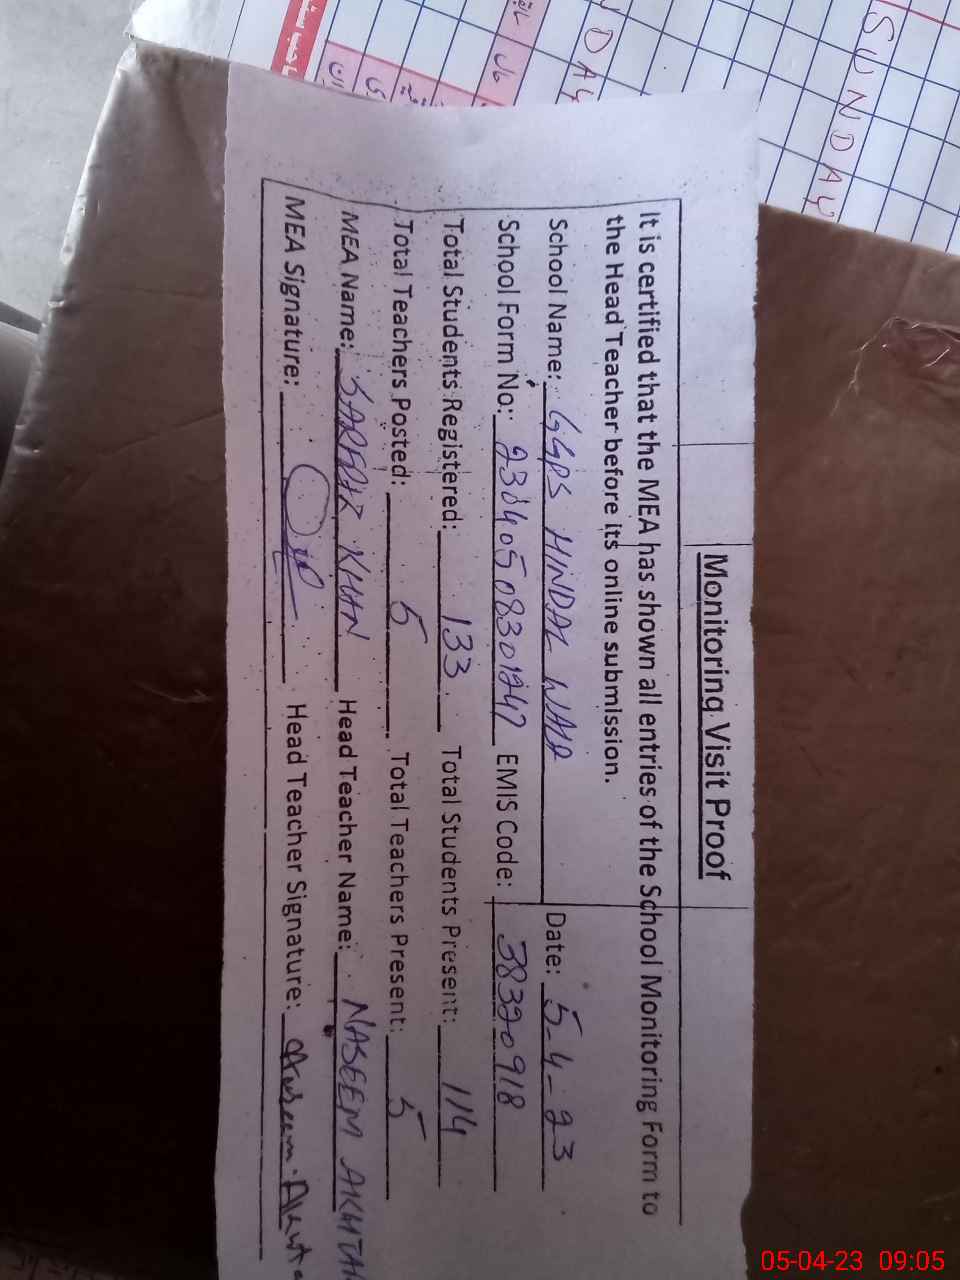 SUNDAY
Monitoring Visit Proof
It is certified that the MEA has shown all entries of the School Monitoring Form to
the Head Teacher before its online submission.
School Name: GGPS HINDAL WALA Date: 5-4-23
School Form No: 23040508301247 EMIS Code: 38320918
Total Students Registered: 133 Total Students Present: 114
Total Teachers Posted: 5 Total Teachers Present: 5
MEA Name: SARFRAZ KHAN Head Teacher Name: NASEEM AKHTAR
MEA Signature: Head Teacher Signature: Naseem Akhtar
05-04-23 09:05